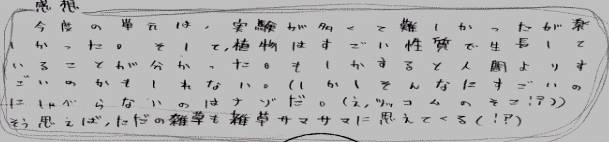 感想
今度の単元は、実験が多くて難しかったが楽
しかった。そして、植物はすごい性質で生長して
いることが分かった。もしかすると人間よりす
ごいのかもしれない。(しかしそんなにすごいの
にしゃべらないのはナゾだ。(え、ツッコムのそこ!?))
そう思えば、ただの雑草も雑草サマサマに思えてくる(!?)